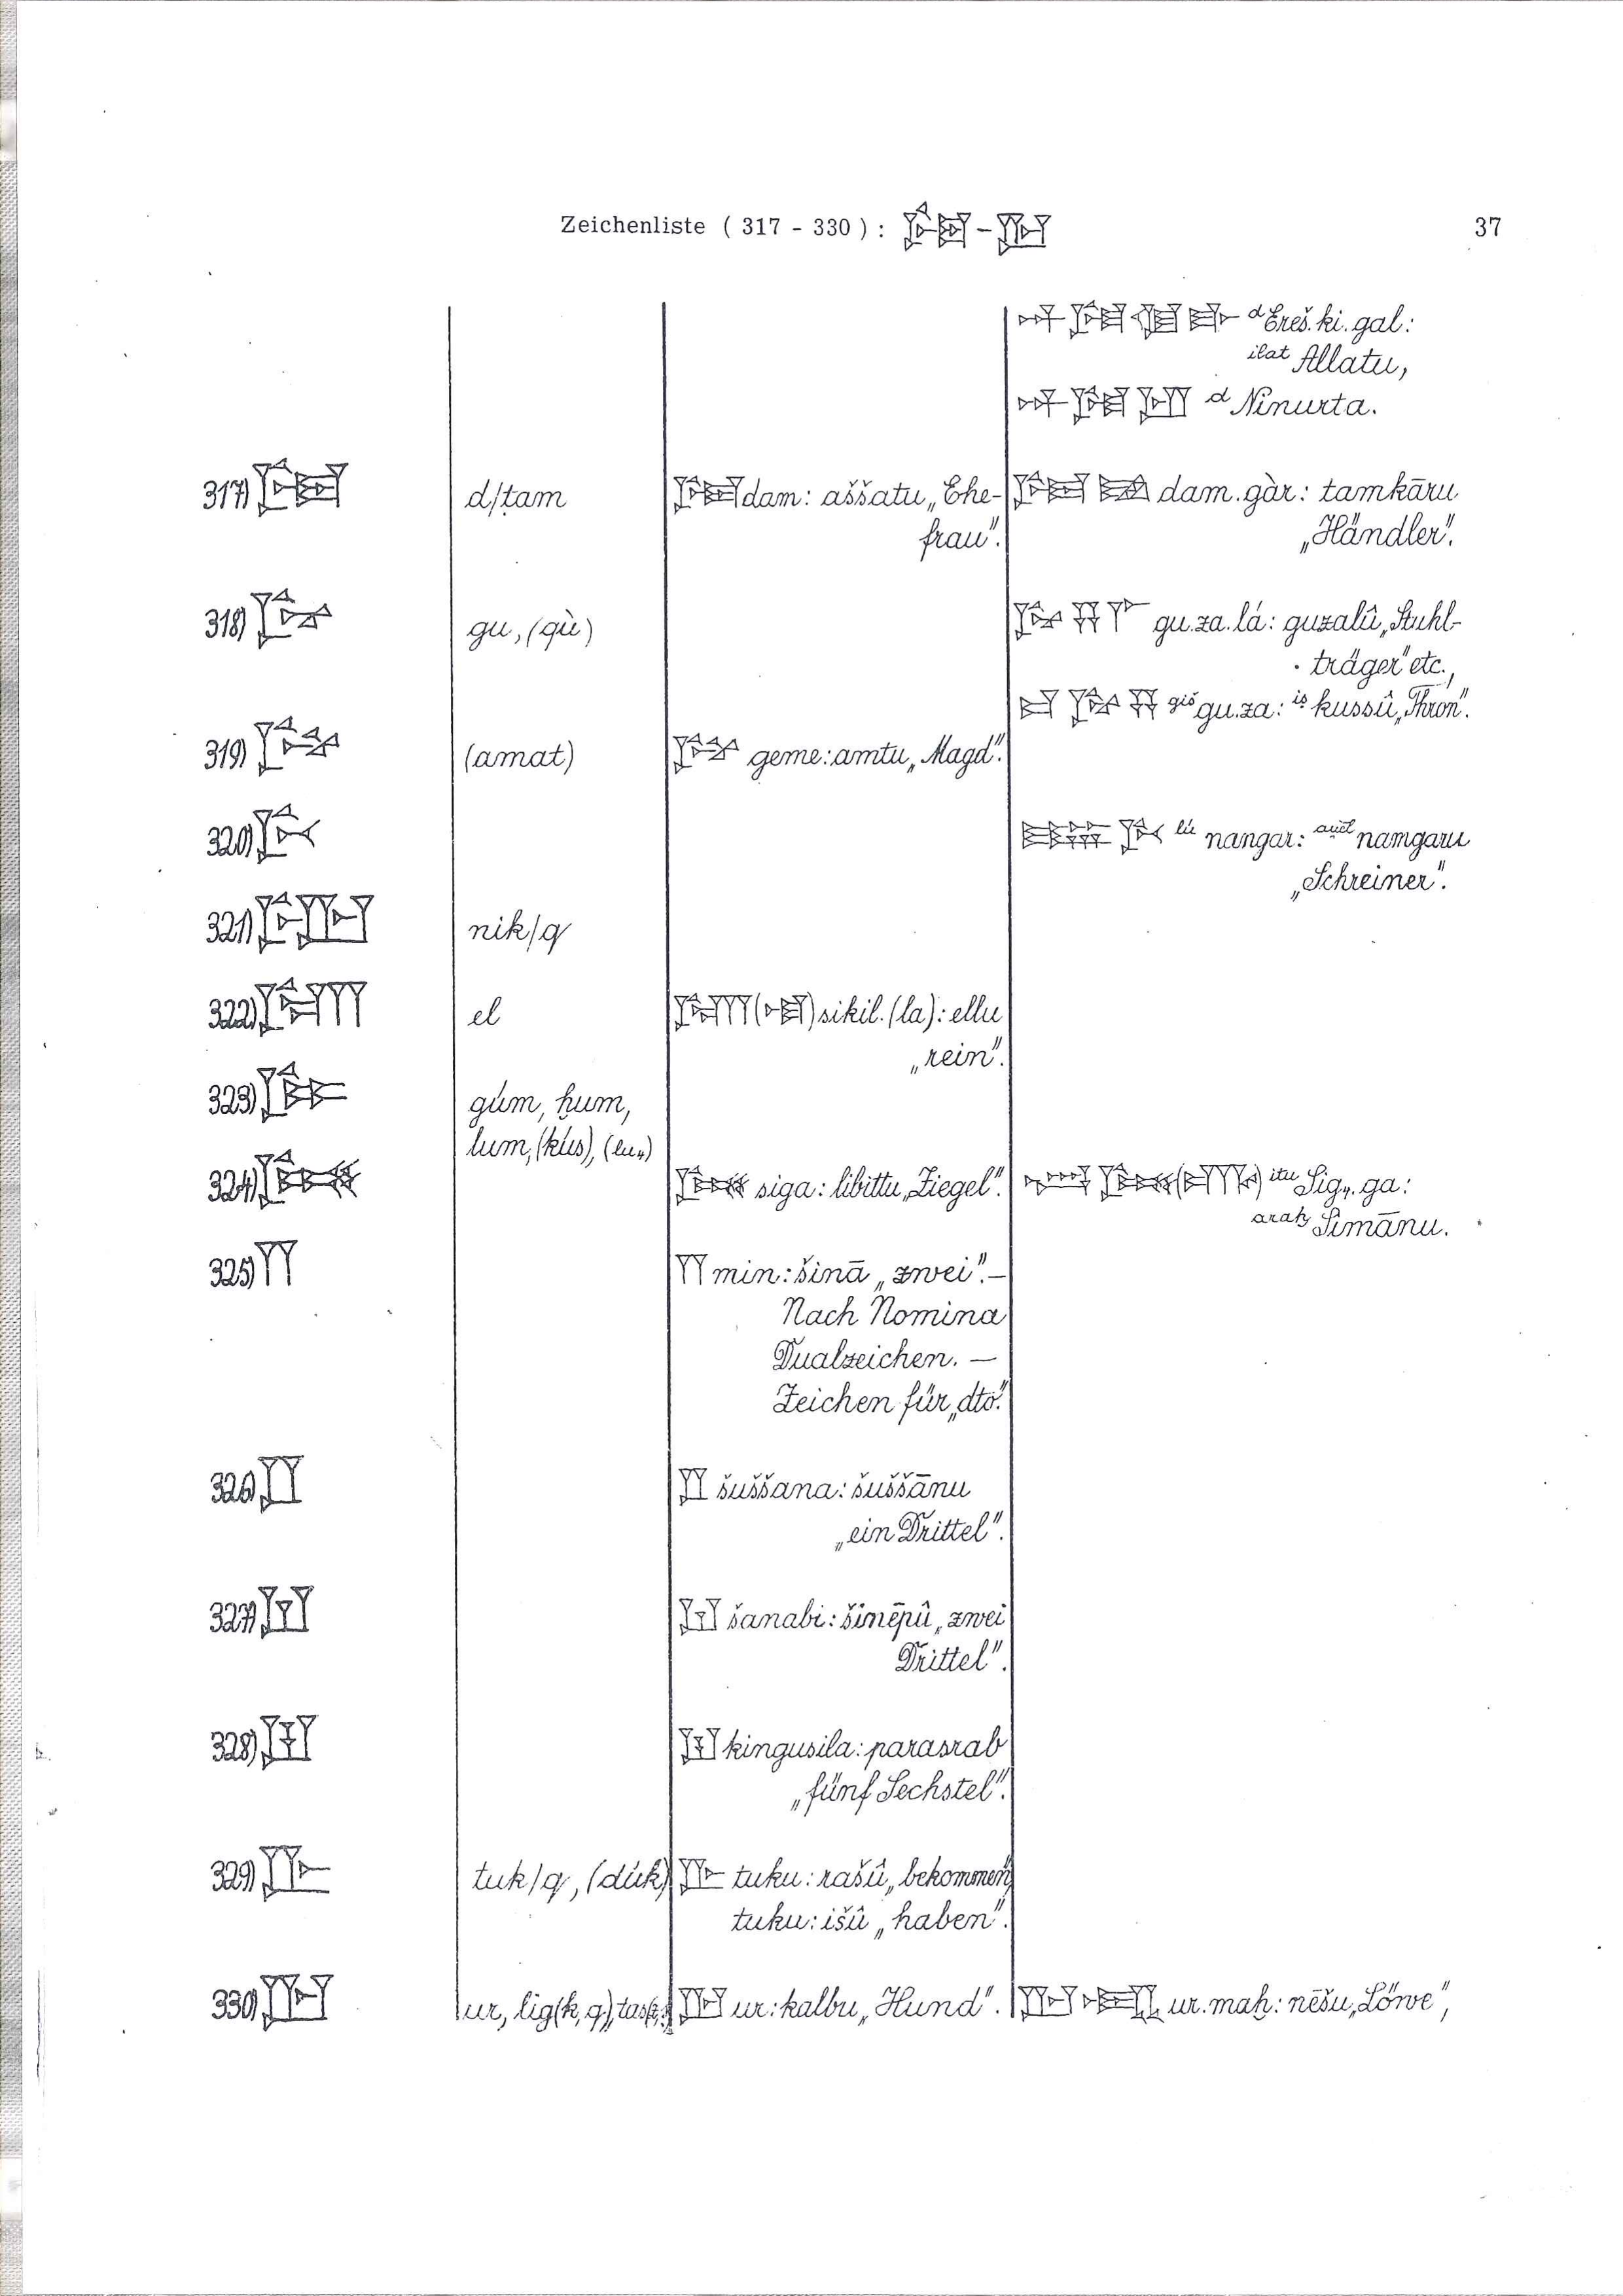 Zeichenliste ( 317 - 330 ) : 𒁮 - 𒌨 37
𒀭 𒎏 𒆠 𒃲 ᵈEreš.ki.gal:
ilat Allatu,
𒀭 𒎏 𒅁 ᵈNinurta.
317) 𒁮 d/ṭam 𒁮 dam: aššatu „Ehe- 𒁮 𒃼 dam.gàr: tamkāru
frau". „Händler".
318) 𒄖 gu, (qù) 𒄖 𒍝 𒇲 gu.za.lá: guzalû „Stuhl-
träger" etc.,
𒄑 𒄖 𒍝 ᵍⁱˢ̌gu.za: iṣ kussû „Thron".
319) 𒊩𒆳 (amat) 𒊩𒆳 geme: amtu „Magd".
320) 𒉄 𒇽 𒉄 lú nangar: au̯ēl namgaru
„Schreiner".
321) 𒊩𒌨 nik/q
322) 𒂖 el 𒂖 (𒆷) sikil.(la): ellu
„rein".
323) 𒈝 gúm, ḫum,
lum, (kús), (lu₄)
324) 𒋞 𒋞 siga: libittu „Ziegel". 𒌚 𒋞 (𒂵) itu Sig₄.ga:
araḫ Simānu.
325) 𒈫 𒈫 min: šinā „zwei". –
Nach Nomina
Dualzeichen. –
Zeichen für „dto".
326) 𒑚 𒑚 šuššana: šuššānu
„ein Drittel".
327) 𒑛 𒑛 šanabi: šinēpû „zwei
Drittel".
328) 𒑜 𒑜 kingusila: parasrab
„fünf Sechstel".
329) 𒌇 tuk/q, (dúk) 𒌇 tuku: rašû „bekommen",
tuku: išû „haben".
330) 𒌨 ur, lig(k, q), 𒌨 ur: kalbu „Hund". 𒌨 𒈤 ur.maḫ: nēšu „Löwe",